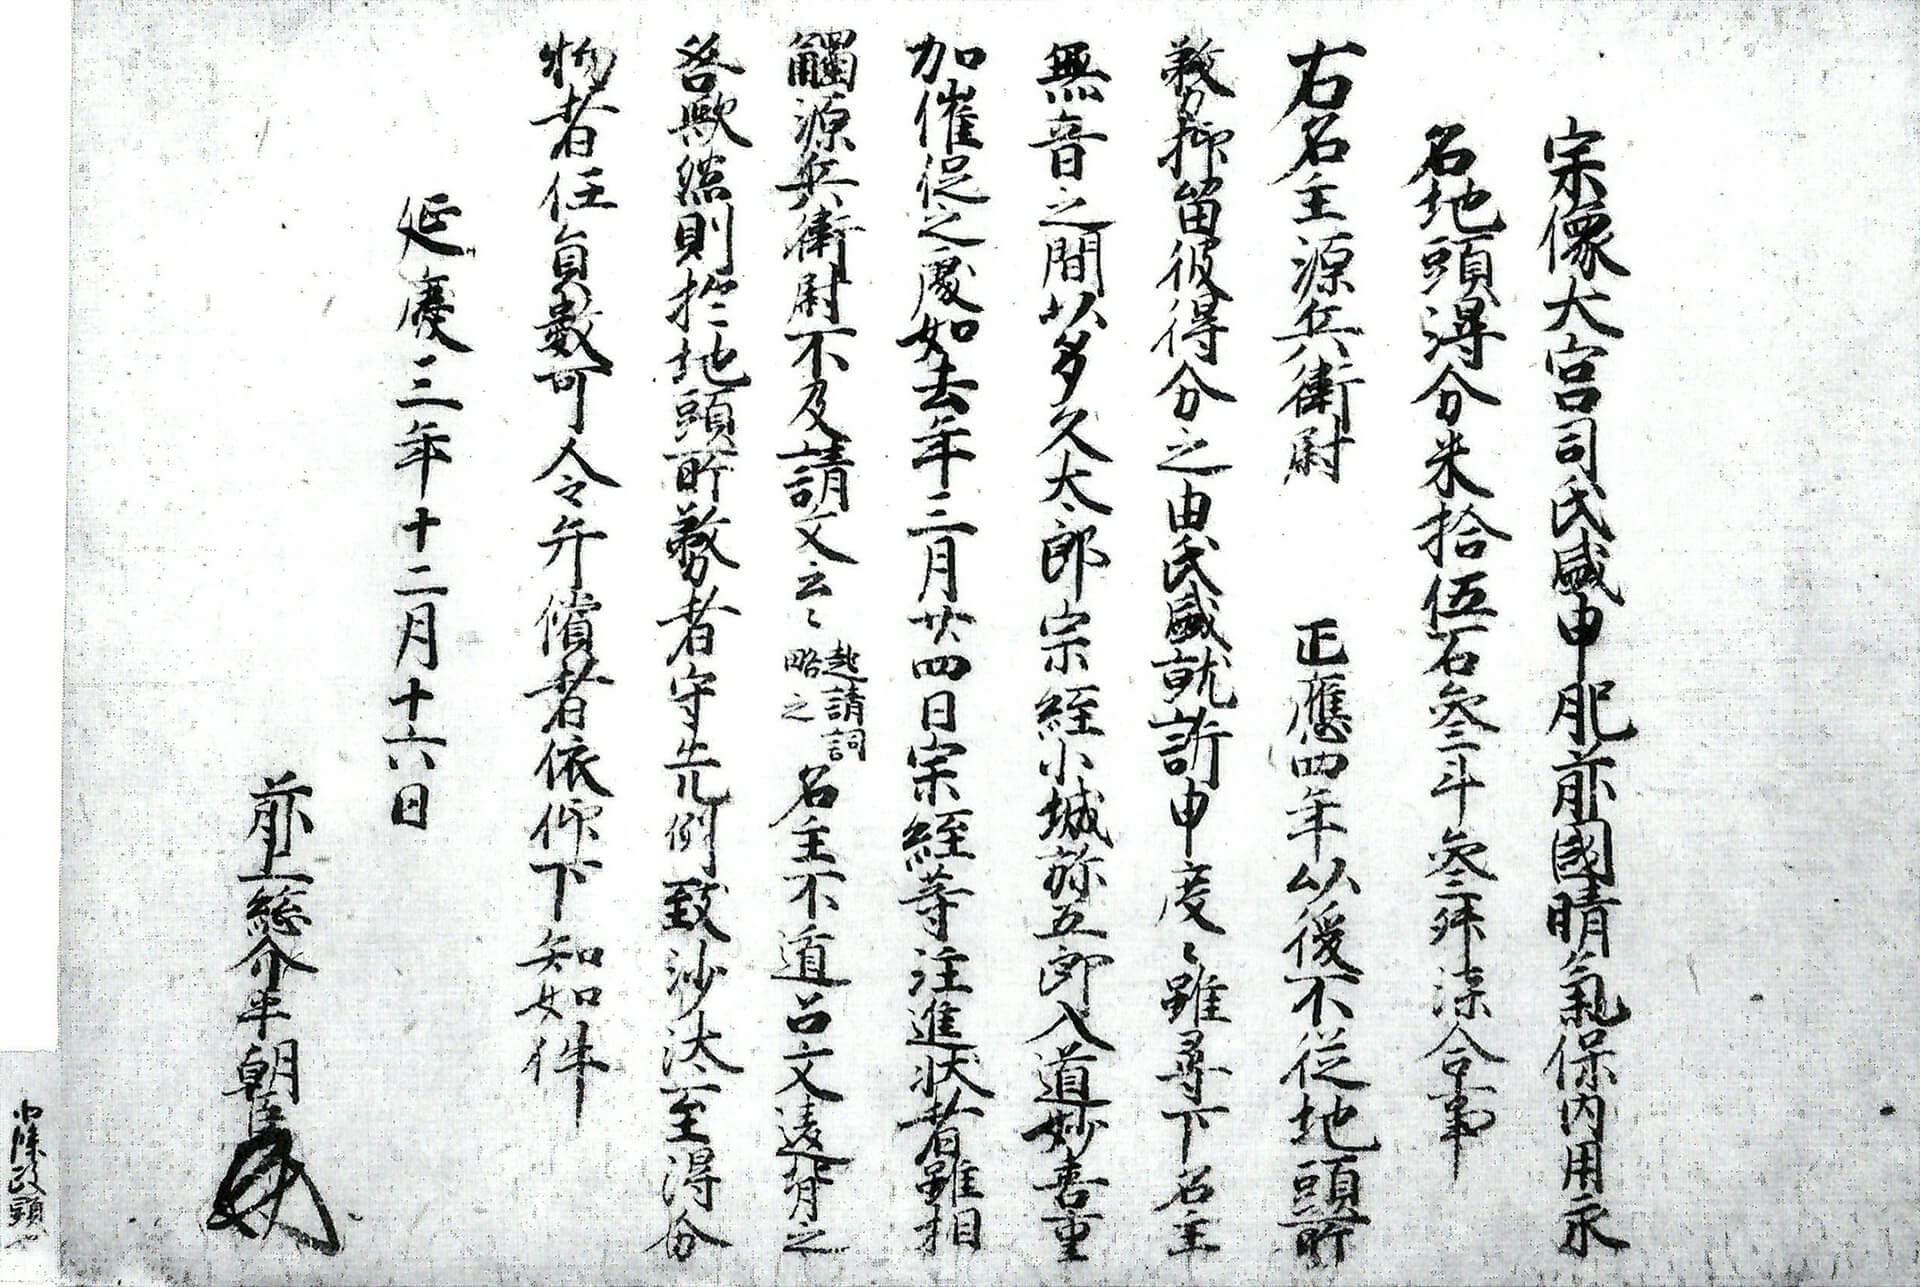 宗像大宮司氏盛申肥前國晴氣保内用永
名地頭得分米拾伍石參斗參升漆合事
右名主源兵衛尉　正應四年以後不從地頭所
務抑留彼得分之由氏盛就訴申度々雖尋下名主
無音之間以多久太郎宗經小城弥五郎入道妙善重
加催促之處如去年三月廿四日宗經等注進状者雖相
觸源兵衛尉不及請文云々起請詞略之名主不道召文違背之
咎歟然則於地頭所務者守先例致沙汰至得分
物者任員數可令弁償者依仰下知如件
延慶三年十二月十六日
前上総介平朝臣